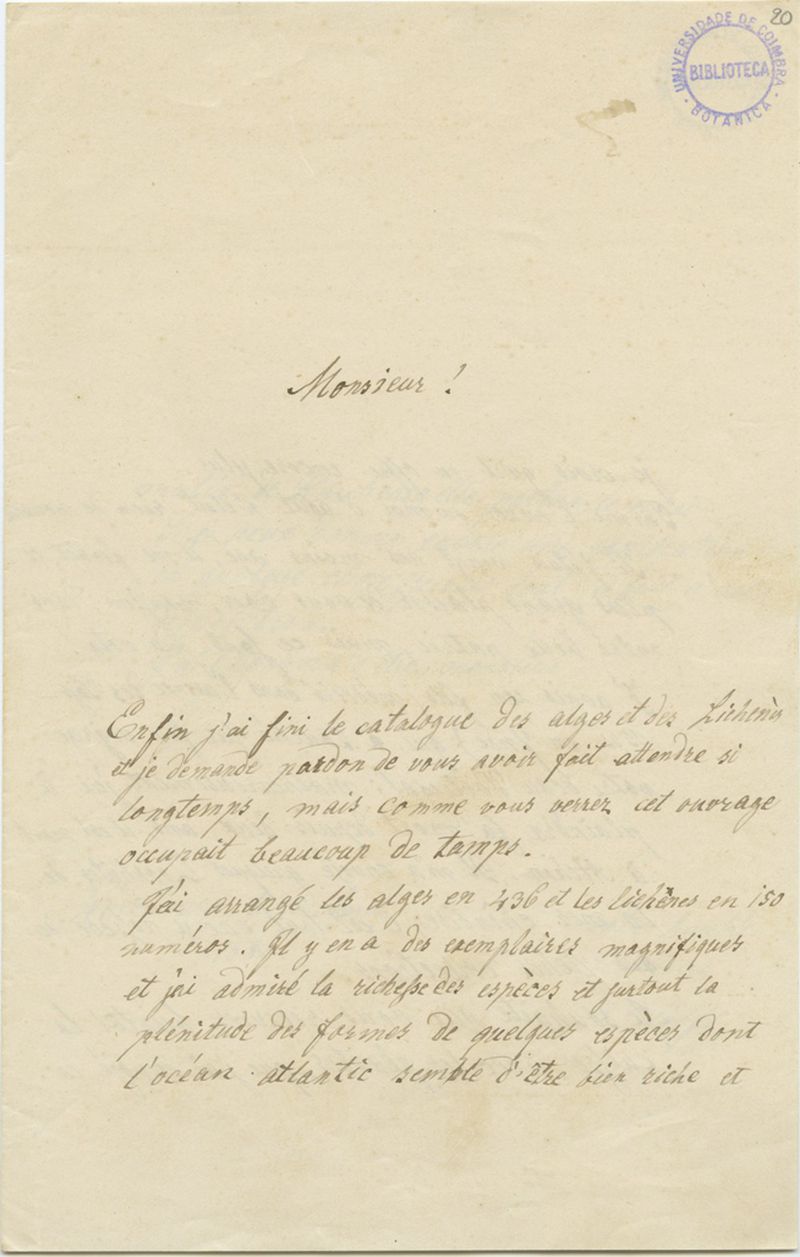 20
UNIVERSIDADE DE COIMBRA
BIBLIOTECA
BOTANICA
Monsieur !
Enfin j'ai fini le catalogue des alges et des Lichenès
et je demande pardon de vous avoir fait attendre si
longtemps, mais comme vous verrez cet ouvrage
occupait beaucoup de tamps.
J'ai arrangé les alges en 436 et les lichènes en 150
numéros. Il y en a des exemplaires magnifiques
et j'ai admiré la richesse des espèces et surtout la
plénitude des formes de quelques espèces dont
l'océan atlantic semble d'être bien riche et